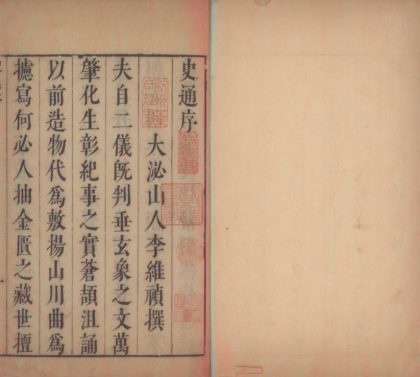 史通序
大泌山人李維禎撰
夫自二儀旣判垂玄象之文萬
肇化生彰紀事之實蒼頡沮誦
以前造物代爲敷揚山川曲爲
攄寫何必人抽金匱之藏世擅